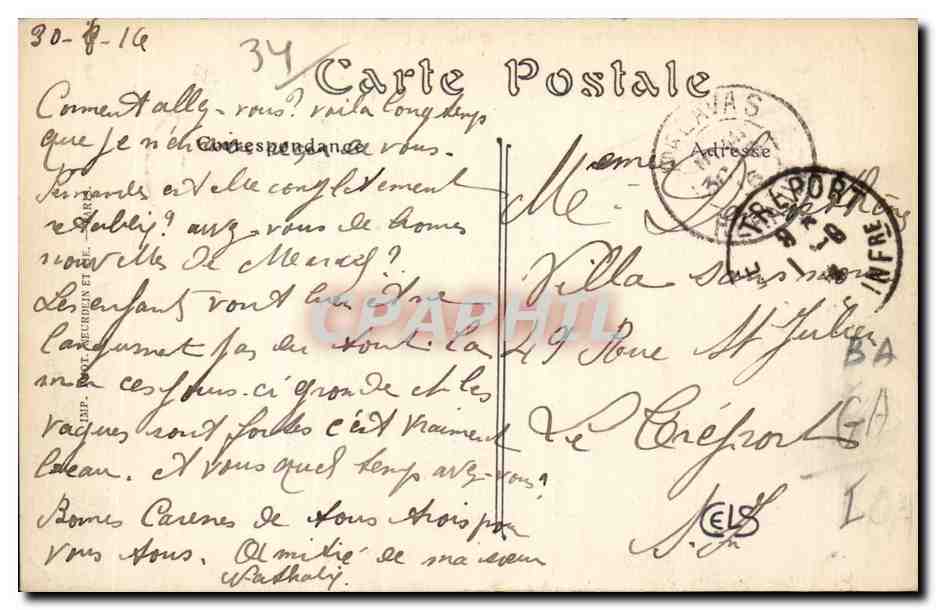 30-8-14
34
Carte Postale
Correspondance
Adresse
Comment allez-vous? voila longtemps
que je n'ai de vous.
est elle complètement
rétablie? avez-vous de bonnes
nouvelles de
Les enfants vont bien et ne
s'ennuient pas du tout. La
mer ces jours-ci gronde et les
vagues sont fortes c'est vraiment
beau. et vous quel temps avez-vous?
Bonnes Caresses de tous trois pour
vous tous. Amitié de ma sœur
Nathalie.
IMP. PHOT. NEURDEIN ET CIE. - PARIS
Mme
Villa sans nom
49 Rue St Julien
Le Tréport
S. In
PALAVAS
LE TREPORT
INFRE
CPAPHIL
CELS
BA
GA
I